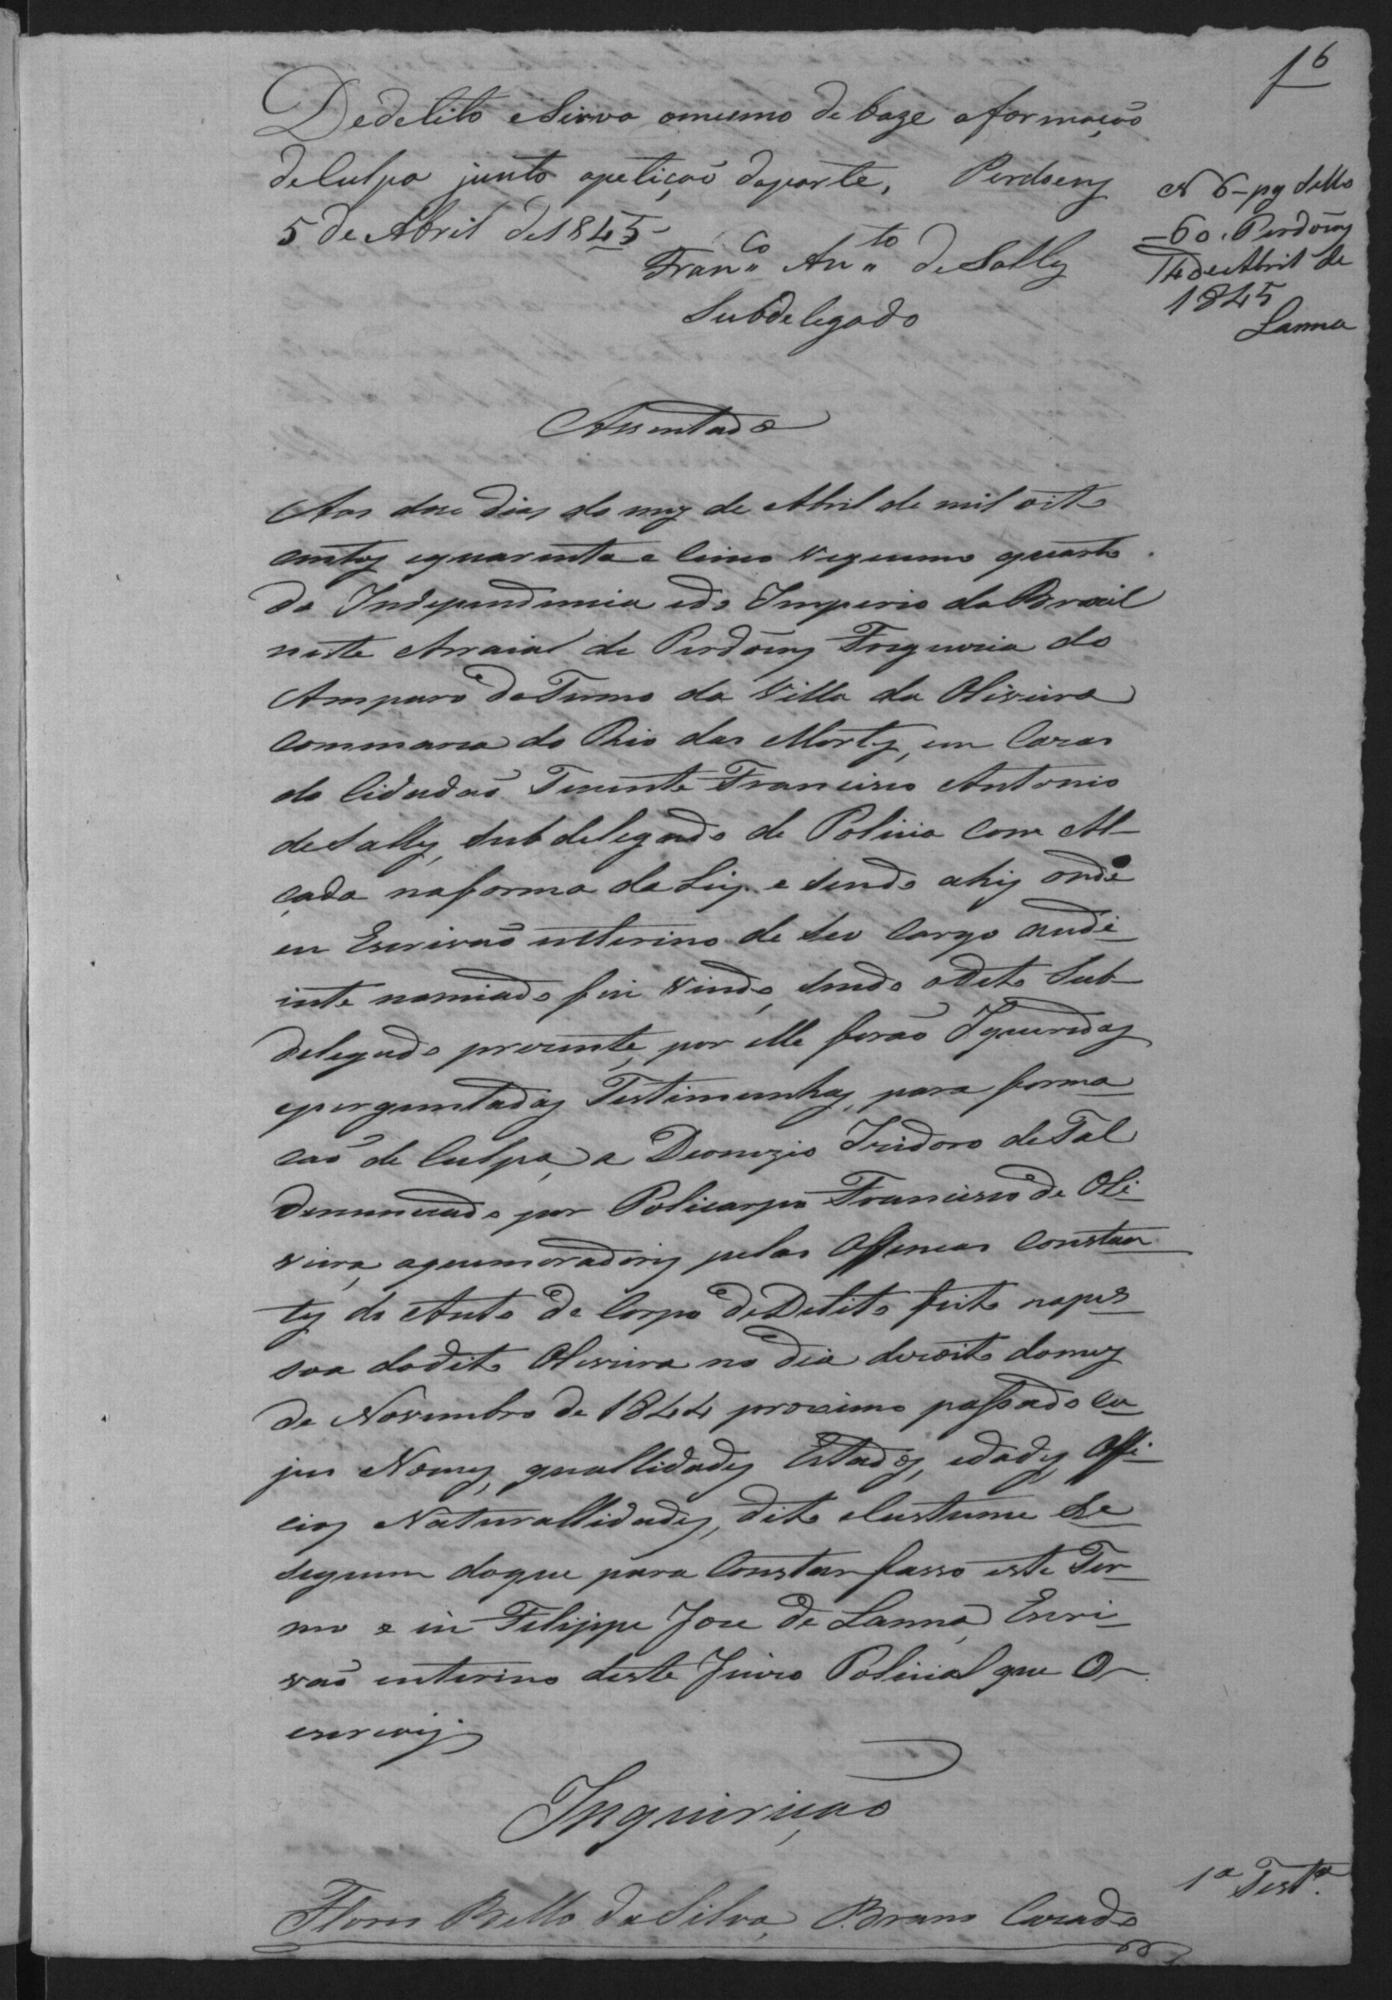 f 6
Dedelito eSirva omesmo de baze aformação
deCulpa junto apetiçaõ daparte, Perdoens
5 de Abril de 1845
Fran.co An.to de Salles
Subdelegado
N 6 - pg sello
- 60 . Perdoens
14 de Abril de
1845
Lanna
Assentada
Aos dose dias do mez de Abril de mil oito
centos equarenta e Cinco vegecimo quarto
da Independencia edo Imperio do Brasil
neste Arraial de Perdoens Freguesia do
Amparo do Termo da Villa da Oliveira
Commarca do Rio das Mortes, em Cazas
do Cidadaõ Tenente Francisco Antonio
de Salles, Subdelegado de Policia Com Al-
çada naforma da Ley. e sendo ahy onde
eu Escrivaõ enterino de seu Cargo audi-
ante nomiado fui vindo, sendo odito Sub-
delegado prezente, por elle foraõ Iqueridas
eperguntadas Testimunhas, para forma-
caõ de Culpa, a Dionizio Izidoro de Tal
denunciado por Policarpo Francisco de Oli-
veira, aguemoradores pelas Offencas Constan-
tes do Auto de Corpo de Delito feito napes-
soa dodito Oliveira no dia dezoito domez
de Novembro de 1844 proximo passado Cu-
jus Nomes, quallidades Estados, edades, Offi-
cios Naturallidades, dito elustume Se
seguem doque para Constar fasso este Ter-
mo e eu Felippe Jose de Lanna, Escri-
vaõ enterino deste Juizo Policial que O
escrevy.
Inquiriçaõ
1ª Test.ª
Flores Bello da Silva, Branco Cazado